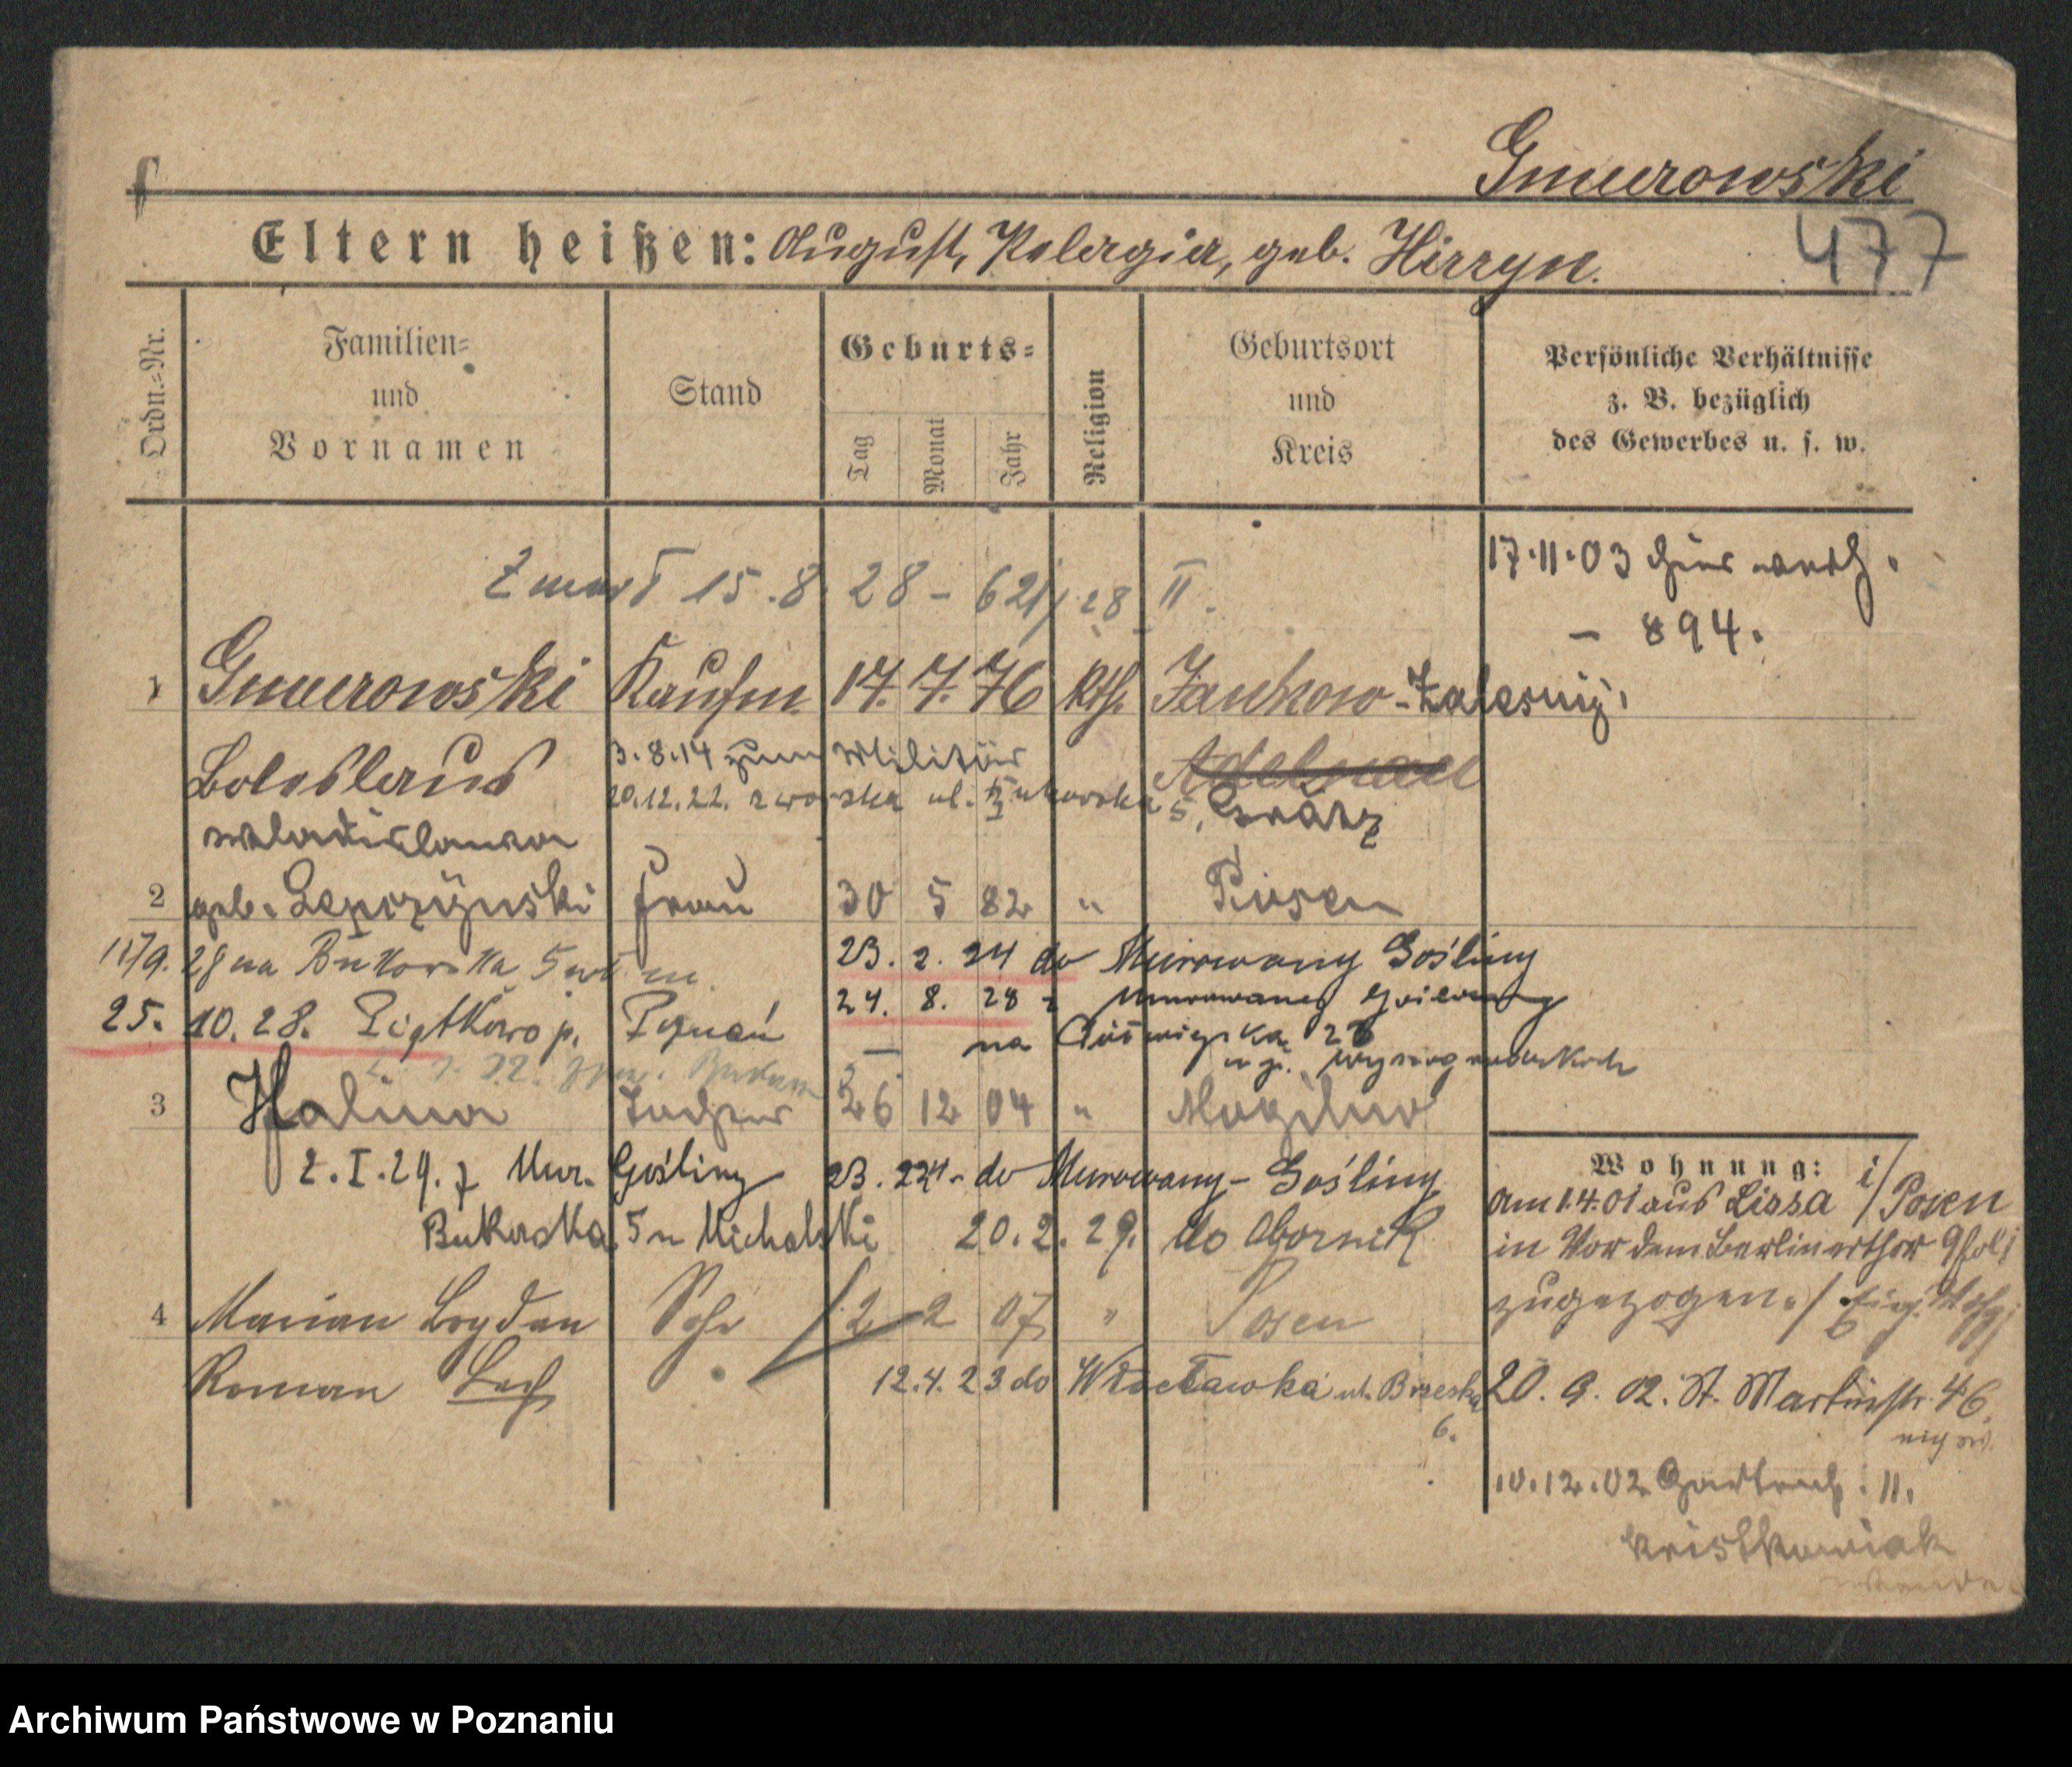 Gmurowski
Eltern heißen: August, Pelagia, geb. Hirzyn.
477
Ordn.=Nr.
Familien=
und
Vornamen
Stand
Geburts=
Tag
Monat
Jahr
Religion
Geburtsort
und
Kreis
Persönliche Verhältnisse
z. B. bezüglich
des Gewerbes u. s. w.
17.11.03 hier verh.
- 894.
Zmarł 15.8.28 - 621/28 II.
1 Gmurowski Kaufm. 17. 7. 76 kth. Jankow-Zalesny.
Boleslaus
3.8.14 zum Militär
Adelnau
20.12.22. ul. Bukowska 5,
Grätz
Wladislawa
2 geb. Lepczynski Frau 30 5 82 " Posen
11/9. 28 na Bukowska 5 m.
23. 2. 24 do Murowany Gośliny
25. 10. 28. Piątkowo p. Poznań
24. 8. 28 z Murowaney Gosliny
na 28
3 Halina Tochter 26 12 04 " Mogilno
2.I.29. z Mur. Gośliny
23. 2 24. do Murowany-Gośliny
Bukowska 5 u Michalski 20.2.29. do Obornik
4 Marian Bogdan Sohn 2 2 07 " Posen
Roman Lech
12.4.23 do Włocławka ul. Brzeska
6.
Wohnung:
am 1.4.01 aus Lissa i/Posen
in Vor dem Berlinerthor 9
zugezogen.
20. 9. 02. St. Martinstr. 46
10.12.02 11.
Kristkowiak
Archiwum Państwowe w Poznaniu